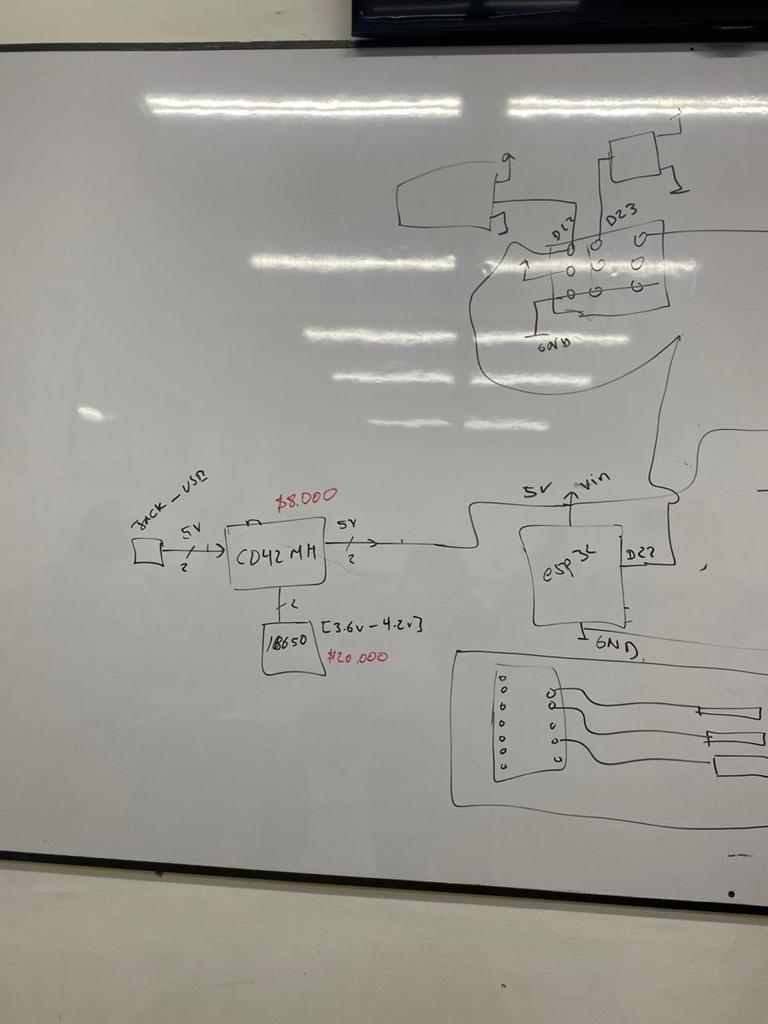 D23
D23
GND
Jack - USB
5V
2
$8.000
CD42 MH
5V
2
2
18650
[3.6v - 4.2v]
$20.000
5V
Vin
esp32
D22
GND